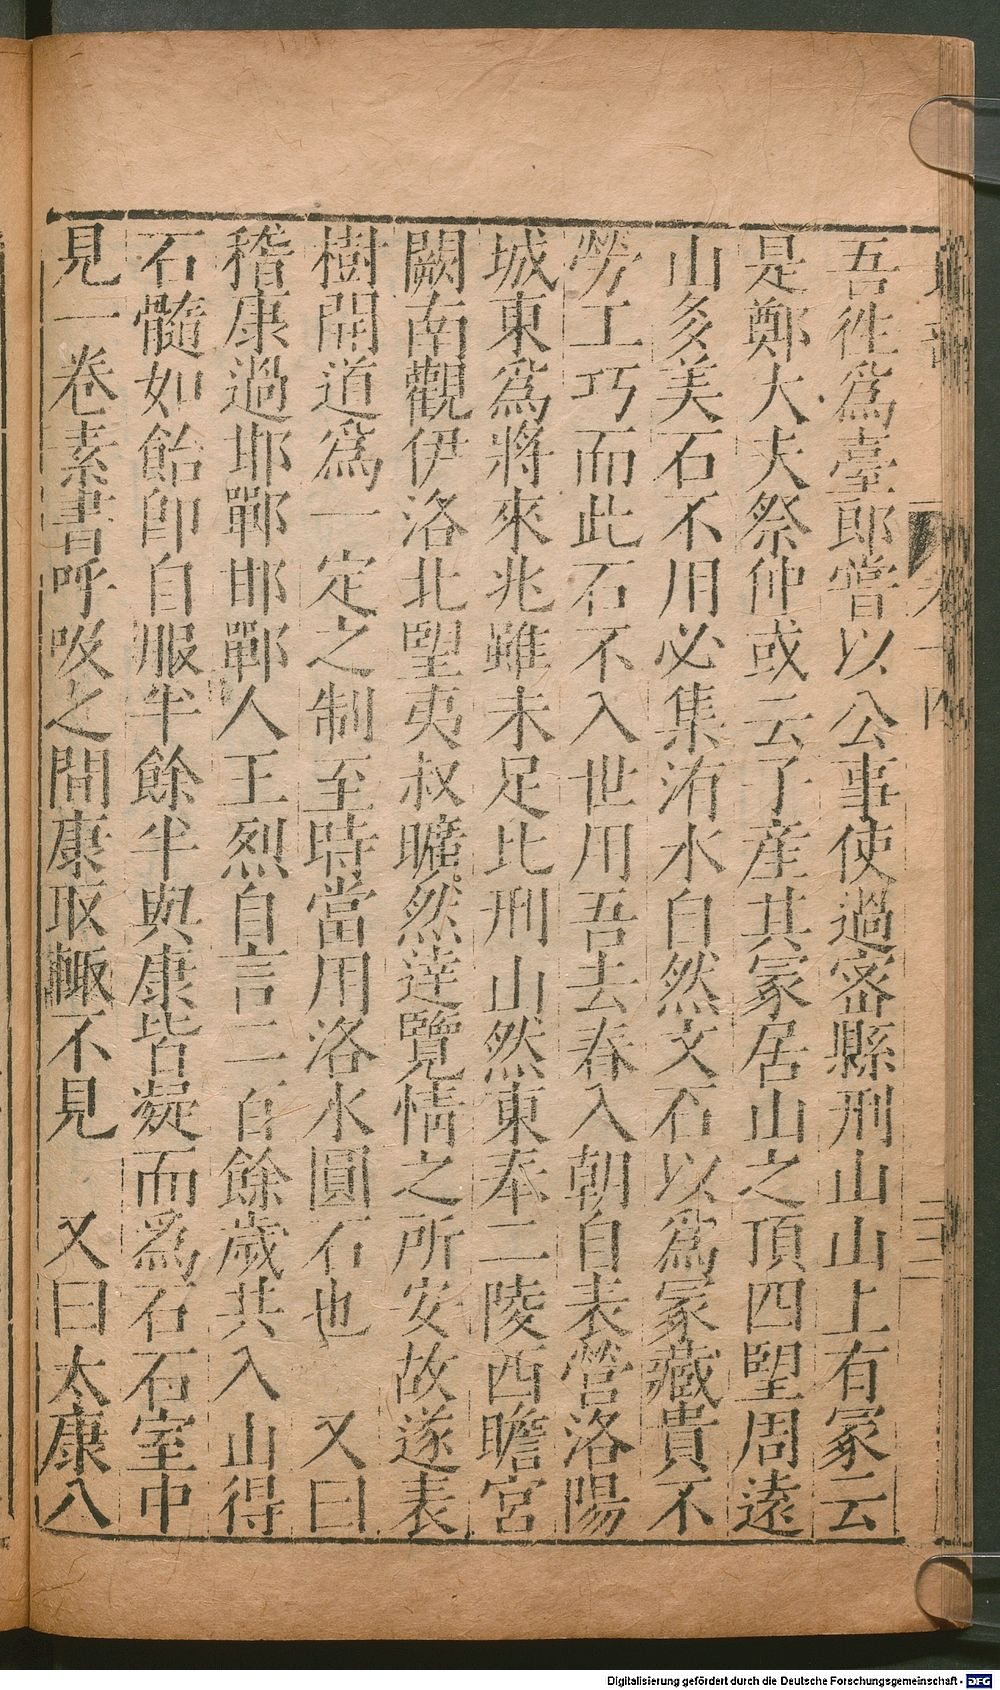 吾徃爲臺郎嘗以公事使過宻縣刑山山上有冡云
是鄭大夫祭仲或云子產其冡居山之頂四朢周遠
山多美石不用必集洧水自然文石以爲冡藏貴不
勞工巧而此石不入世用吾去春入朝自表營洛陽
城東爲將來兆雖未足比刑山然東奉二陵西瞻宮
闕南觀伊洛北朢夷叔曠然逹覽情之所安故遂表
樹開道爲一定之制至時當用洛水圓石也　又曰
稽康過邯鄲邯鄲人王烈自言二百餘歲共入山得
石髓如飴卽自服半餘半與康皆凝而爲石石室中
見一卷素書呼吸之間康取輙不見　又曰太康八
卷十四
Digitalisierung gefördert durch die Deutsche Forschungsgemeinschaft - DFG